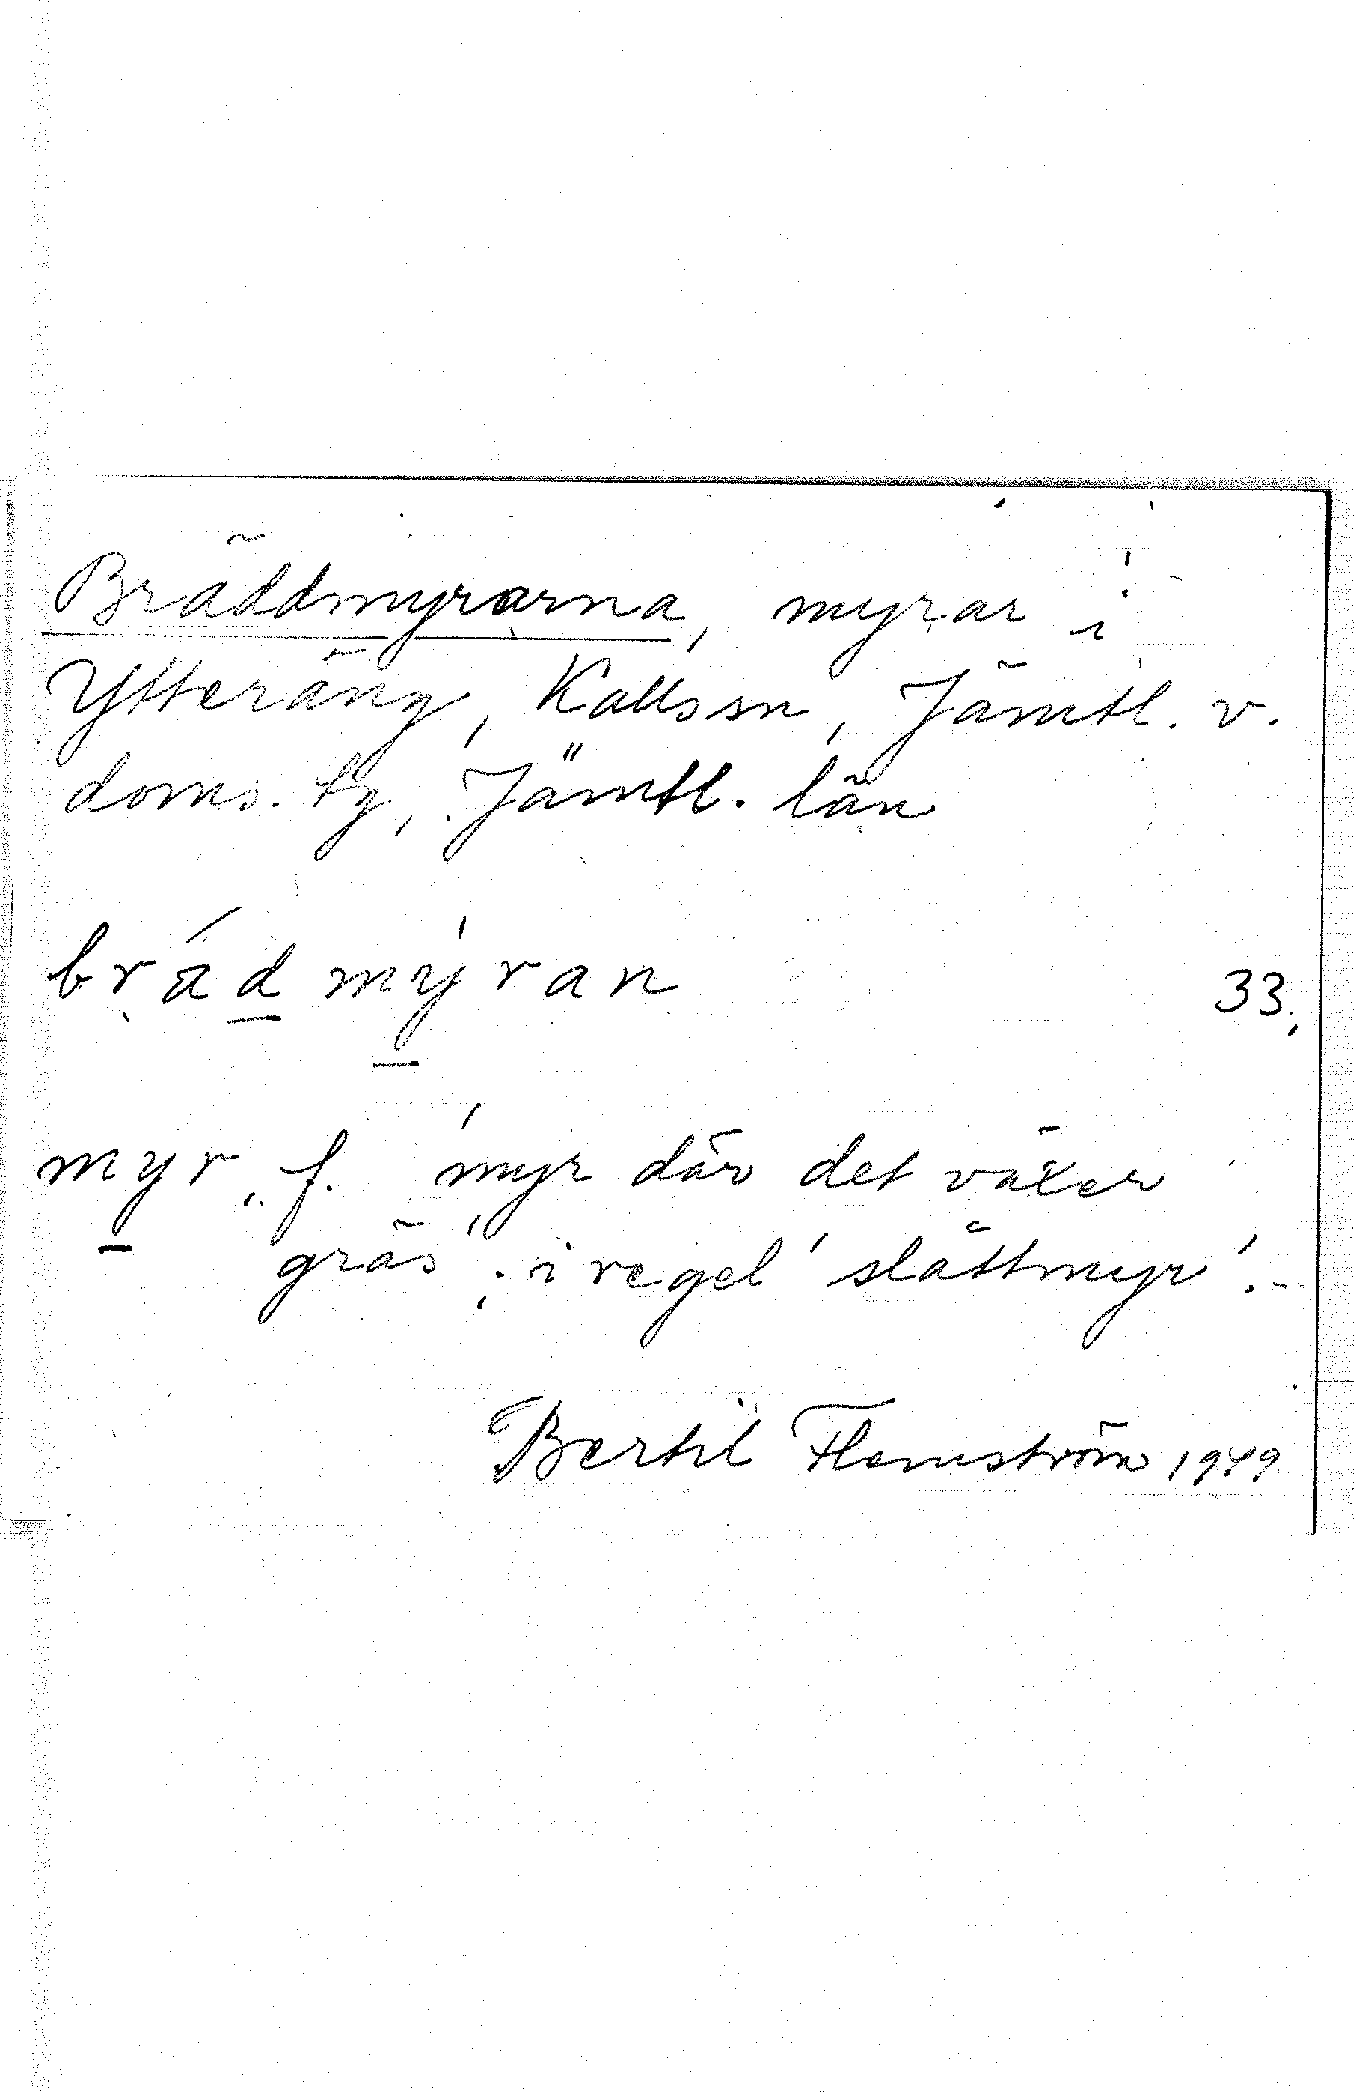 Bräddmyrarna, myrar i
Ytteräng, Kalls sn, Jämtl. v.
doms. tg, Jämtl. län
brä́dmýran 33.
myr, f. 'myr där det växer
gräs'; i regel 'slåttmyr'.
Bertil Flemström 1949